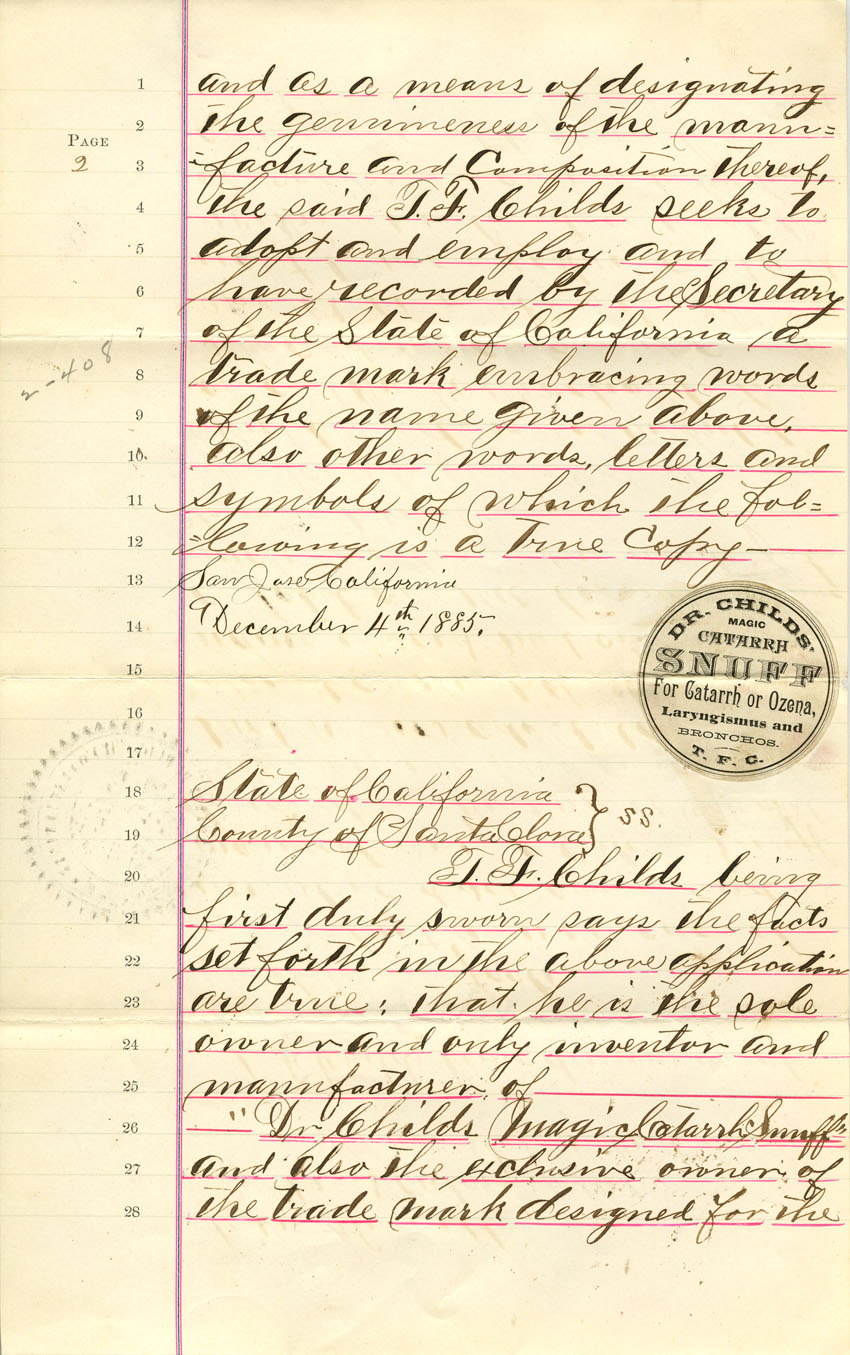 PAGE
2
2-408
1 and as a means of designating
2 the genuineness of the manu=
3 =facture and Composition thereof,
4 the said T. F. Childs seeks to
5 adopt and employ and to
6 have recorded by the Secretary
7 of the State of California a
8 trade mark embracing words
9 of the name given above,
10 also other words, letters and
11 symbols of which the fol=
12 =lowing is a True Copy—
13 San Jose California
14 December 4th 1885.
DR. CHILDS'
MAGIC
CATARRH
SNUFF
For Catarrh or Ozena,
Laryngismus and
BRONCHOS.
T. F. C.
15
16
17
18 State of California
19 County of Santa Clara } ss.
20 T. F. Childs being
21 first duly sworn says the facts
22 set forth in the above application
23 are true; that he is the sole
24 owner and only inventor and
25 manufacturer of
26 "Dr Childs Magic Catarrh Snuff"
27 and also the exclusive owner of
28 the trade mark designed for the